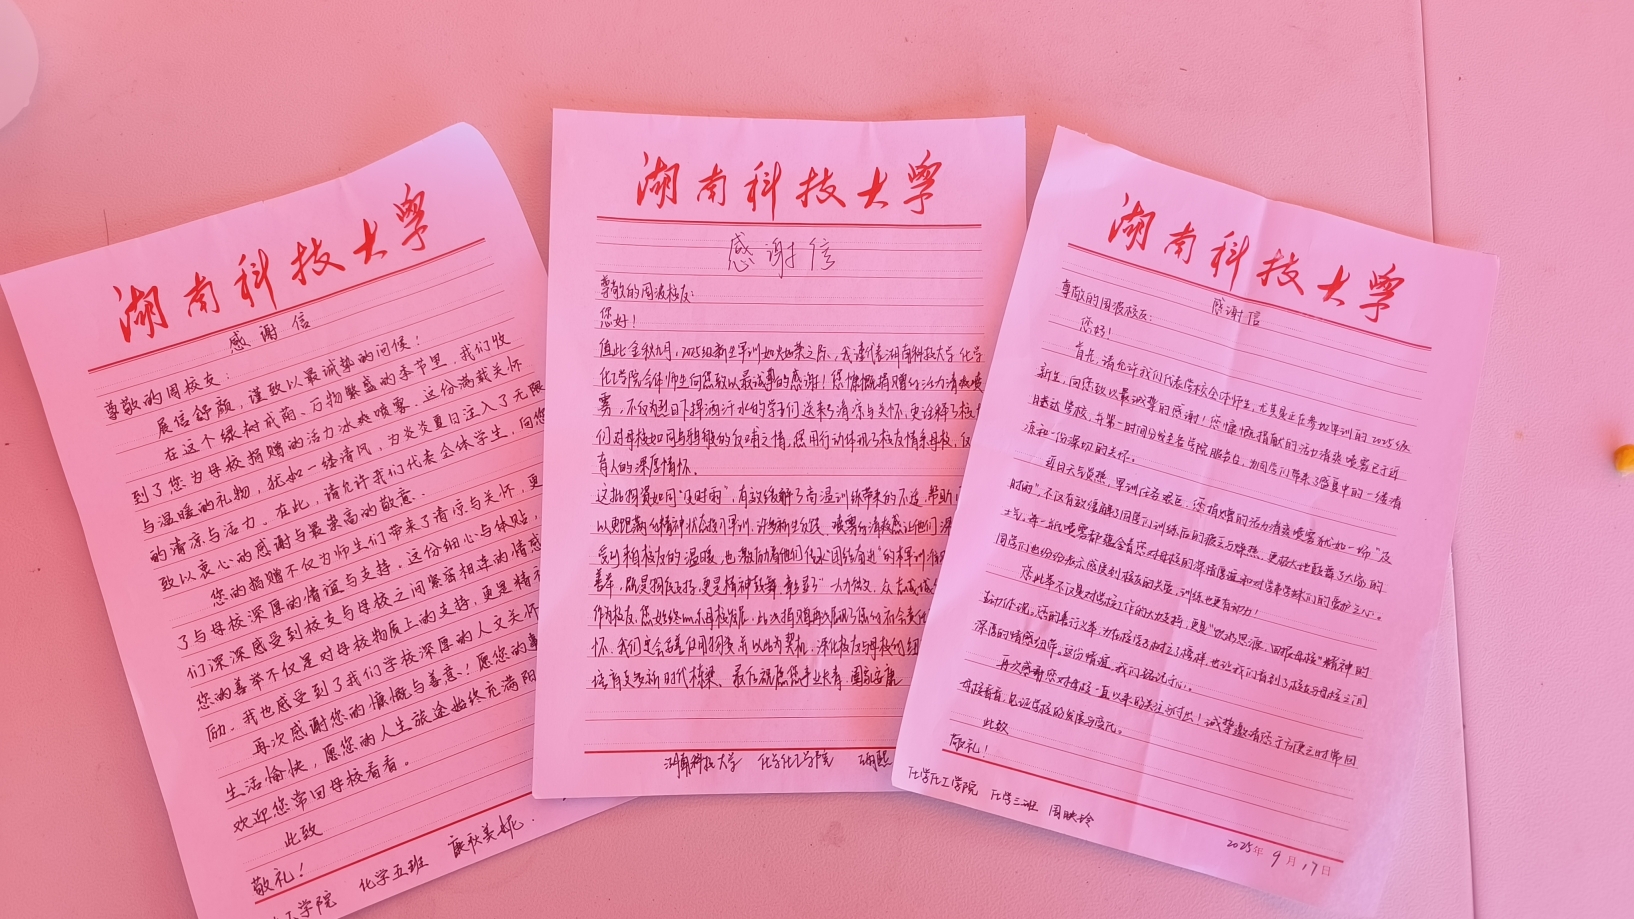 湖南科技大学
感谢信
尊敬的周校友：
展信舒颜，谨致以最诚挚的问候！
在这个绿树成荫、万物繁盛的季节里，我们收
到了您为母校捐赠的活力冰爽喷雾。这份满载关怀
与温暖的礼物，犹如一缕清风，为炎炎夏日注入了无限
的清凉与活力。在此，请允许我们代表全体学生，向您
致以衷心的感谢与最崇高的敬意。
您的捐赠不仅为师生们带来了清凉与关怀，更
了与母校深厚的情谊与支持。这份细心与体贴，
们深深感受到校友与母校之间紧密相连的情感
您的善举不仅是对母校物质上的支持，更是精神
励。我也感受到了我们学校深厚的人文关怀
再次感谢您的慷慨与善意！愿您的事
生活愉快，愿您的人生旅途始终充满阳
欢迎您常回母校看看。
此致
敬礼！
工学院 化学五班 秋美妮
湖南科技大学
感谢信
尊敬的周波校友：
您好！
值此金秋九月，2025级新生军训如火如荼之际，我谨代表湖南科技大学化学
化工学院全体师生向您致以最诚挚的感谢！您慷慨捐赠的活力清爽喷
雾，不仅为烈日下挥洒汗水的学子们送来了清凉与关怀，更诠释了校友
们对母校如同与雏的反哺之情，您用行动体现了校友情系母校，
育人的深厚情怀。
这批物资如同"及时雨"，有效缓解了高温训练带来的不适，帮助
以更饱满的精神状态投入军训。许多新生反映，喷雾的清爽感让他们深
受到来自校友的温暖，也激励着他们传承"团结奋进"的军训精神
善举，既是物质支持，更是精神鼓舞，彰显了"
作为校友，您始终心系母校发展，此次捐赠再次展现了您的社会责任
怀。我们定会善用物资，并以此为契机，深化校友与母校的纽
培育更多新时代栋梁。最后祝愿您事业长青，阖家安康
湖南科技大学 化学化工学院
湖南科技大学
感谢信
尊敬的周波校友：
您好！
首先，请允许我们代表学校全体师生，尤其是正在参加军训的2025级
新生，向您致以最诚挚的感谢！您慷慨捐献的活力清爽喷雾已于近
日送达学校，并第一时间分发至各学院服务台，为同学们带来了盛夏中的一缕清
凉和一份深切的关怀。
连日天气炎热，军训任务艰巨，您捐赠的活力清爽喷雾犹如一场"及
时雨"，不仅有效缓解了同学们训练后的疲乏与燥热，更极大地鼓舞了大家的
士气，每一瓶喷雾都蕴含着您对母校的深情厚谊和对学弟学妹们的爱护之心。
同学们也纷纷表示感受到校友的关爱，训练也更有动力！
您此举不仅是对学校工作的大力支持，更是"饮水思源，回报母校"精神的
生动体现。您的善行义举，为在校学子树立了榜样，也让我们看到了校友与母校之间
深厚的情感纽带。这份情谊，我们铭记于心。
再次感谢您对母校一直以来的关注与付出！诚挚邀请您于方便之时常回
母校看看，见证学校的发展与变化。
此致
敬礼！
化学化工学院 化学三班 周映玲
2025年9月17日